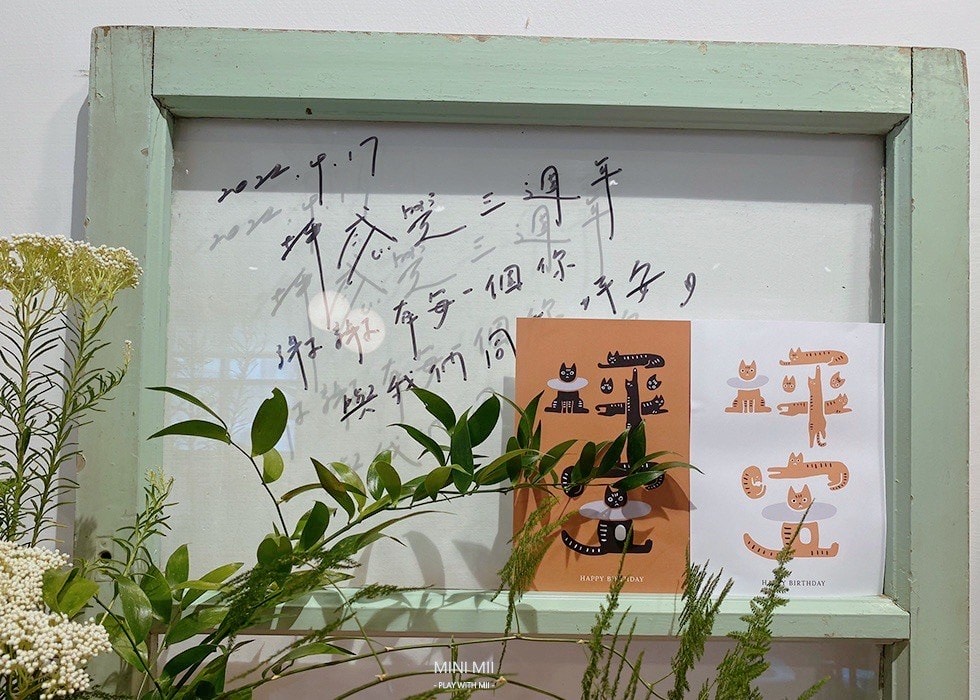 2022.4.17
坪感覺三週年
謝謝有每一個你 "平安",
與我們同
平安
HAPPY BIRTHDAY
平安
HAPPY BIRTHDAY
MINI MII
- PLAY WITH MII -